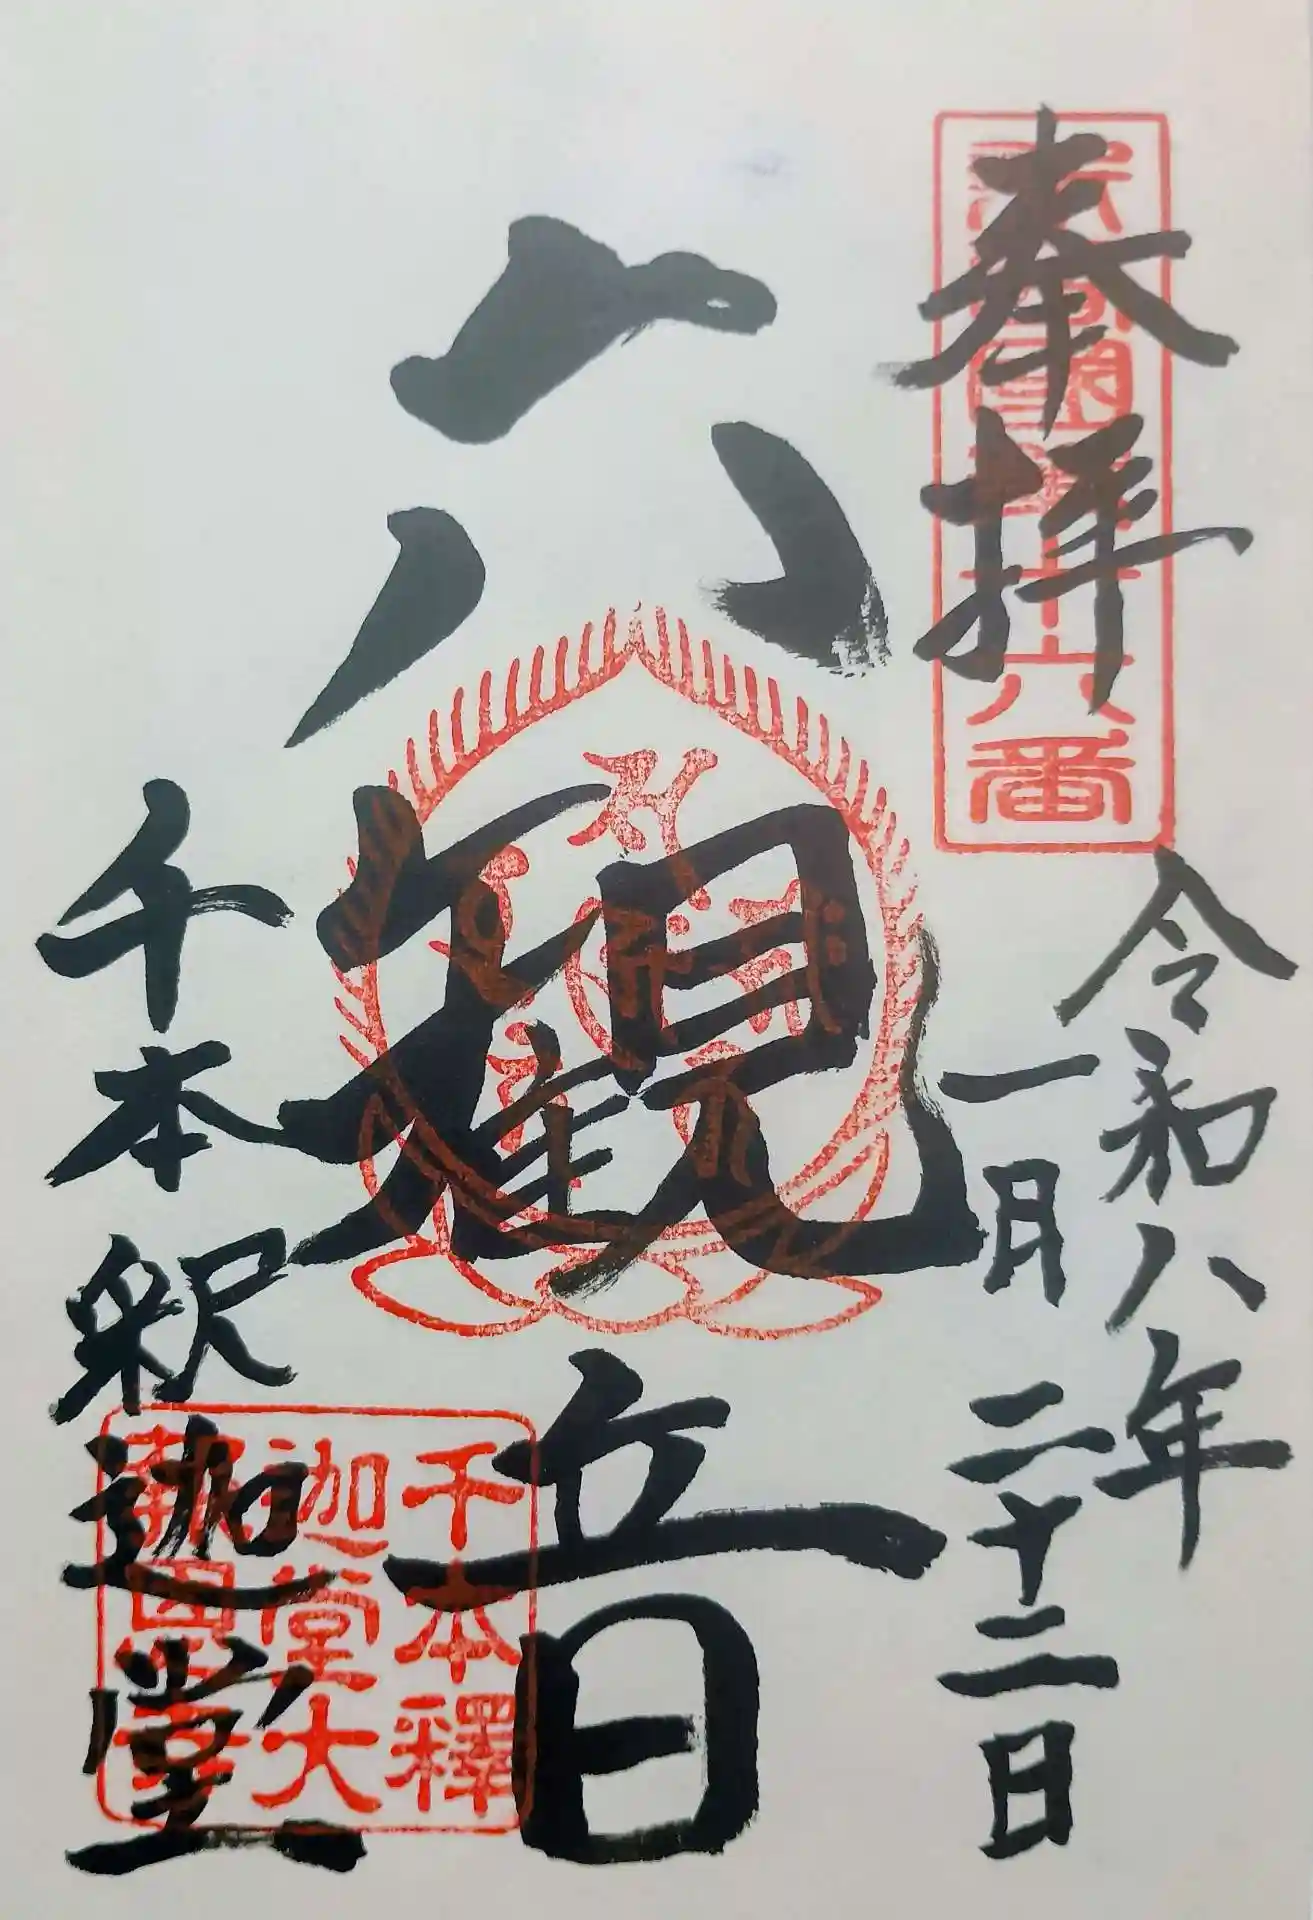 奉拝
新西國第十六番
令和八年
一月二十二日
六観音
千本釈迦堂
千本釋
迦堂大
報恩寺